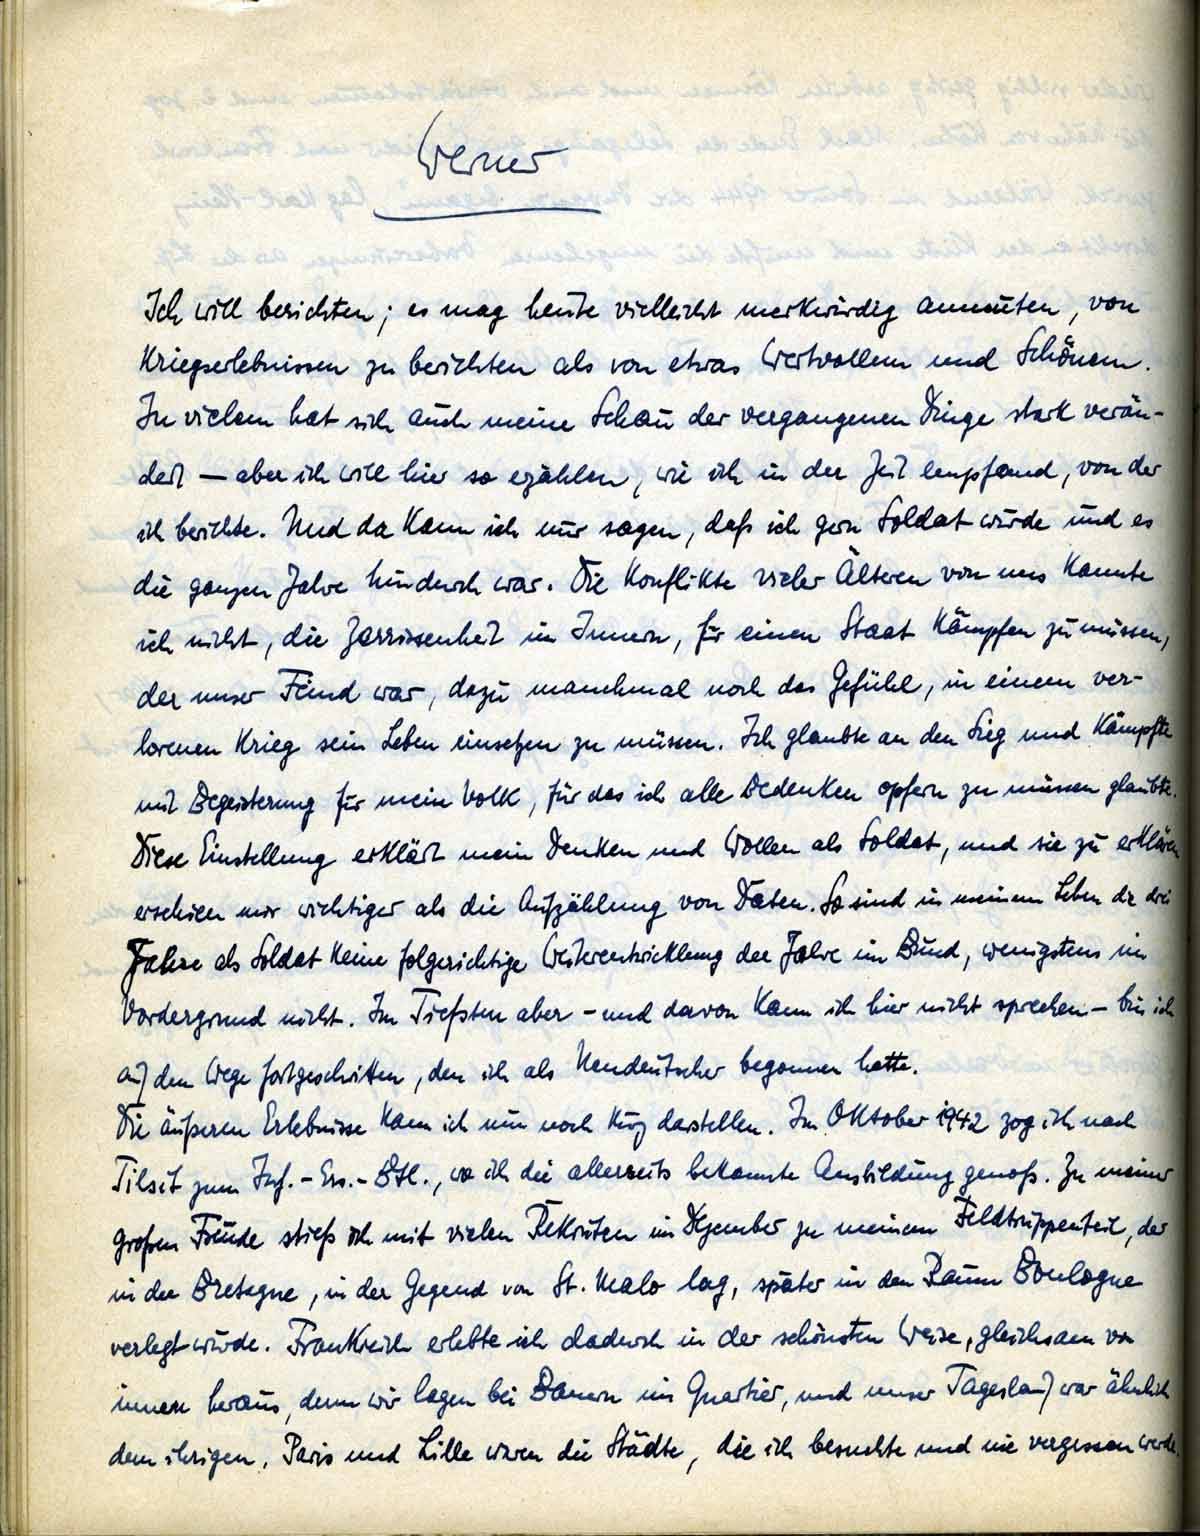 Werner
Ich will berichten; es mag heute vielleicht merkwürdig anmuten, von
Kriegserlebnissen zu berichten als von etwas Wertvollem und Schönem.
In vielem hat sich auch meine Schau der vergangenen Dinge stark verän-
dert — aber ich will hier so erzählen, wie ich in der Zeit empfand, von der
ich berichte. Und da kann ich nur sagen, daß ich gern Soldat wurde und es
die ganzen Jahre hindurch war. Die Konflikte vieler Älteren von uns kannte
ich nicht, die Zerrissenheit im Innern, für einen Staat kämpfen zu müssen,
der unser Feind war, dazu manchmal noch das Gefühl, in einem ver-
lorenen Krieg sein Leben einsetzen zu müssen. Ich glaubte an den Sieg und kämpfte
mit Begeisterung für mein Volk, für das ich alle Bedenken opfern zu müssen glaubte.
Diese Einstellung erklärt mein Denken und Wollen als Soldat, und sie zu erklären
erschien mir wichtiger als die Aufzählung von Daten. So sind in meinem Leben die drei
Jahre als Soldat keine folgerichtige Weiterentwicklung der Jahre im Bund, wenigstens im
Vordergrund nicht. Im Tiefsten aber – und davon kann ich hier nicht sprechen – bin ich
auf dem Wege fortgeschritten, den ich als Neudeutscher begonnen hatte.
Die äußeren Erlebnisse kann ich nun noch kurz darstellen. Im Oktober 1942 zog ich nach
Tilsit zum Inf.-Ers.-Btl., wo ich die allerseits bekannte Ausbildung genoß. Zu meiner
großen Freude stieß ich mit vielen Rekruten im Dezember zu meinem Feldtruppenteil, der
in der Bretagne, in der Gegend von St. Malo lag, später in den Raum Boulogne
verlegt wurde. Frankreich erlebte ich dadurch in der schönsten Weise, gleichsam von
innen heraus, denn wir lagen bei Bauern im Quartier, und unser Tageslauf war ähnlich
dem ihrigen. Paris und Lille waren die Städte, die ich besuchte und nie vergessen werde.